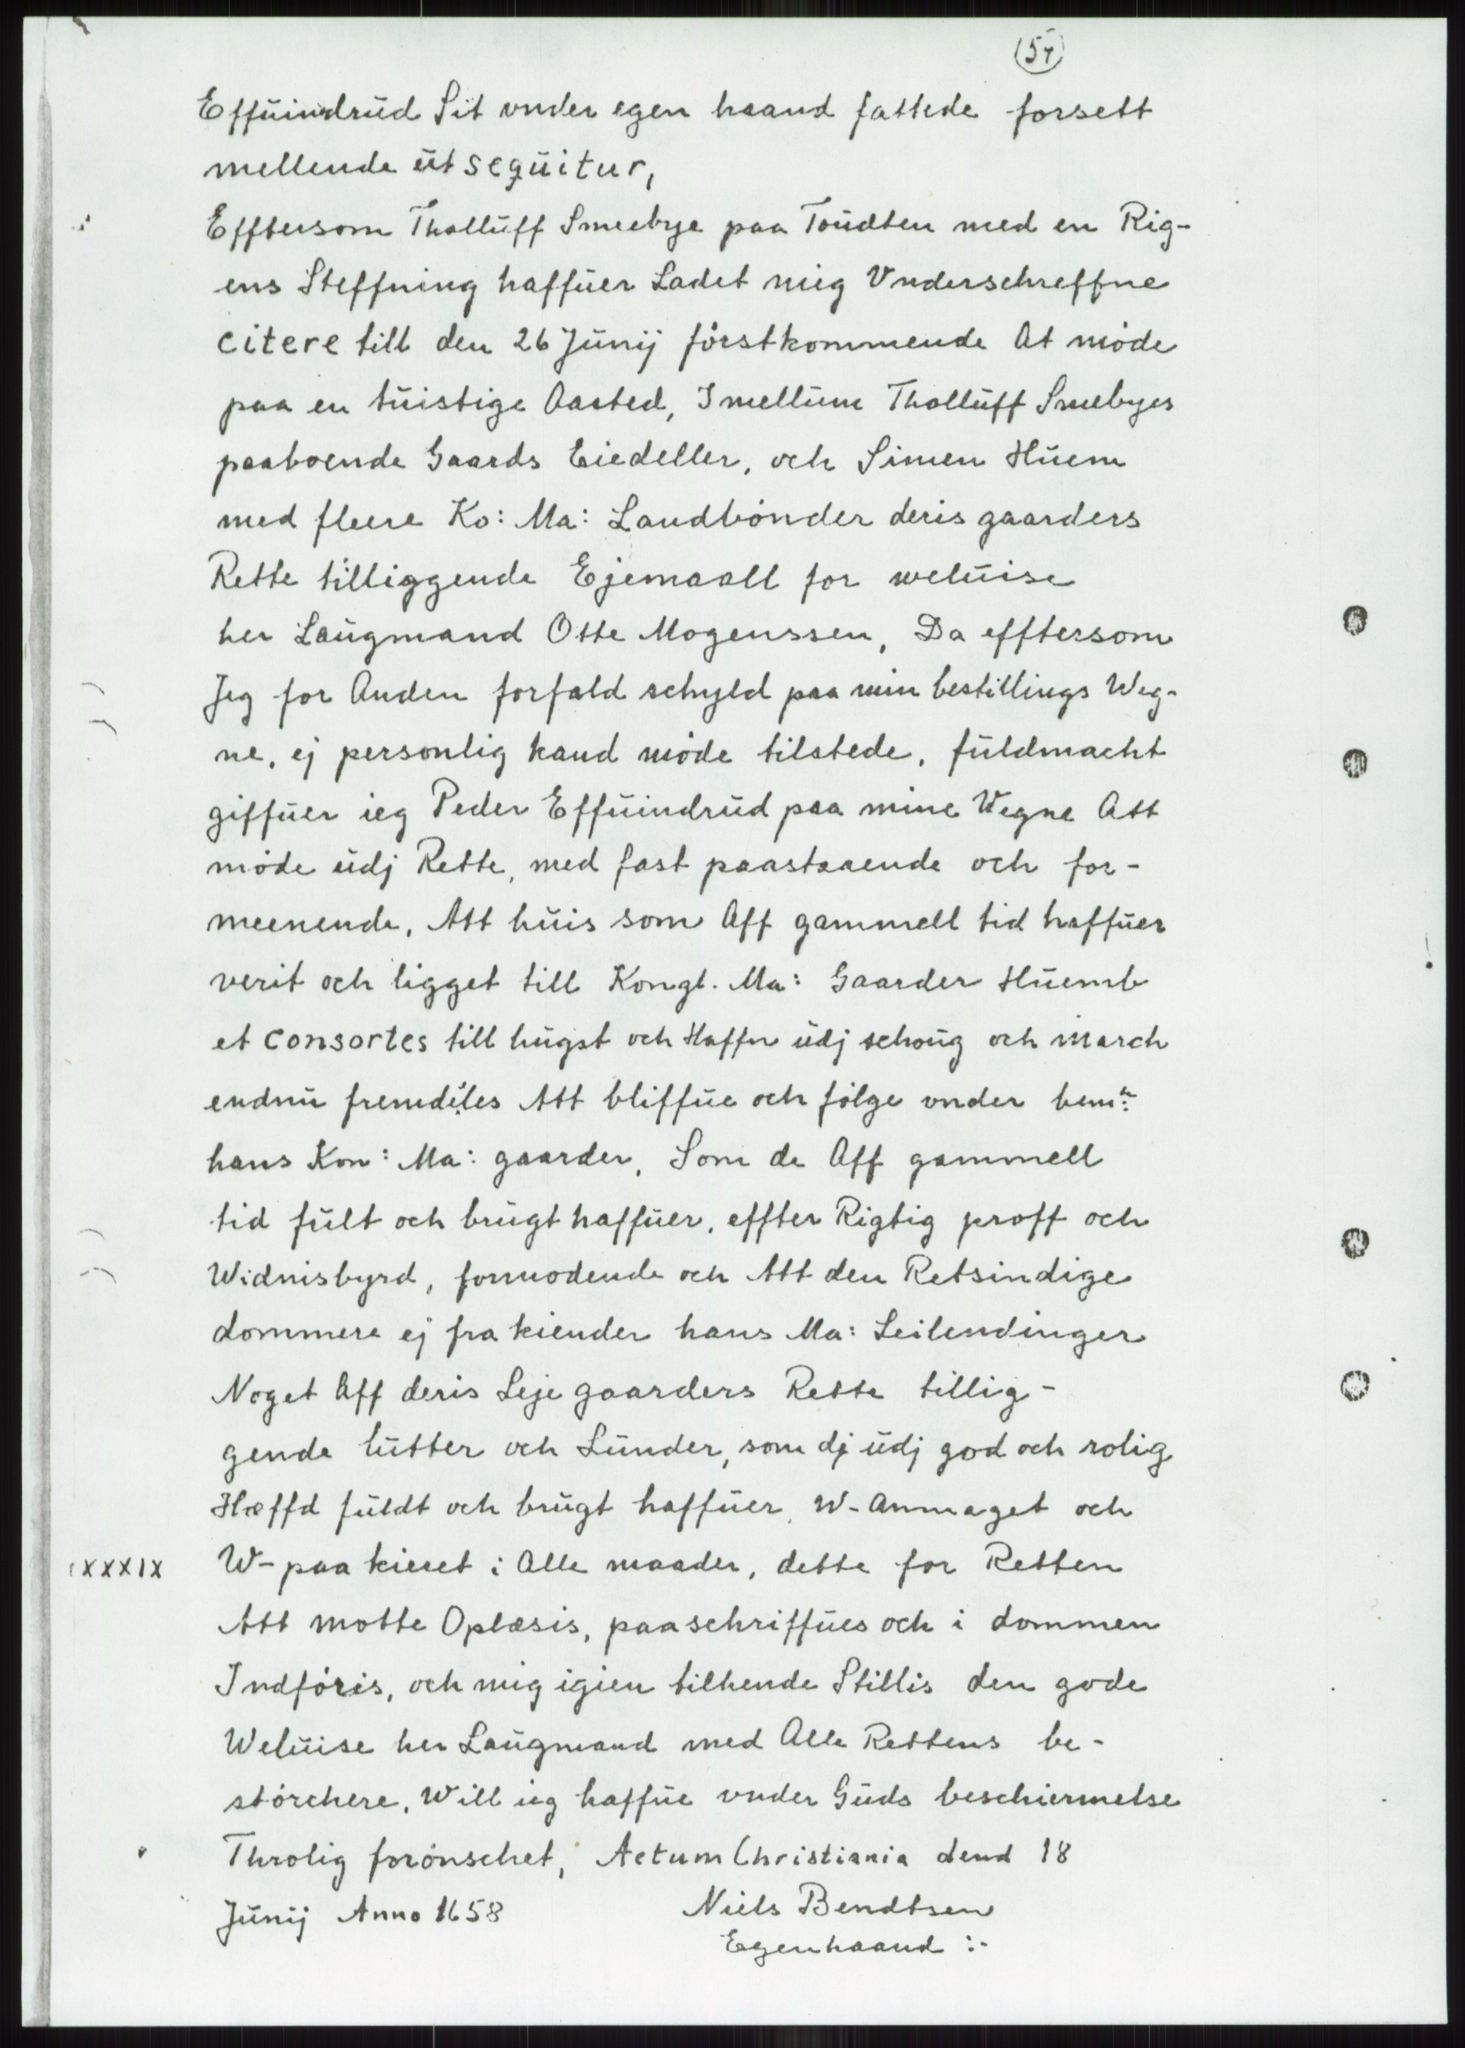 (57)
Effuindrud Sit vnder egen haand fattede forsett
mellende ut sequitur,
Efftersom Tholluff Smeebye paa Toudten med en Rig-
ens Steffning haffuer Ladet mig Vnderschreffne
citere till den 26 Junij förstkommende At møde
paa en tuistige Aasted, Imellum Tholluff Smebyes
paaboende Gaards Eiedeller, och Simen Huem
med fleere Ko: Ma: Landbønder deris gaarders
Rette tilliggende Ejemaall for weluise
her Laugmand Otte Mogenssen, Da efftersom
Jeg for Anden forfald schyld paa min bestillings Weg-
ne, ej personlig kand møde tilstede, fuldmacht
giffuer ieg Peder Effuindrud paa mine Wegne Att
møde udj Rette, med fast paastaaende och for-
meenende, Att huis som Aff gammell tid haffuer
verit och ligget till Kongl. Ma: Gaarder Huemb
et consortes till hugst och Haffn udj schoug och march
endnu fremdeles Att bliffue och følge vnder bemte
hans Kon: Ma: gaarder, Som de Aff gammell
tid fult och brugt haffuer, effter Rigtig proff och
Widnisbyrd, formodende och Att den Retsindige
dommere ej fra kiender hans Ma: Leilendinger
Noget Aff deris Leje gaarders Rette tillig-
gende lutter och Lunder, som dj udj god och rolig
Hæffd fuldt och brugt haffuer, W-Anmaget och
XXXIX W-paa kieret i Alle maader, dette for Retten
Att motte Oplæsis, paaschriffues och i dommen
Indføris, och mig igien tilhende Stillis den gode
Weluise her Laugmand med Alle Rettens be-
størchere, Will ieg haffue vnder Guds beschiermelse
Throlig forønschet, Actum Christiania dend 18
Junij Anno 1658 Niels Bendtsen
Egenhaand :-